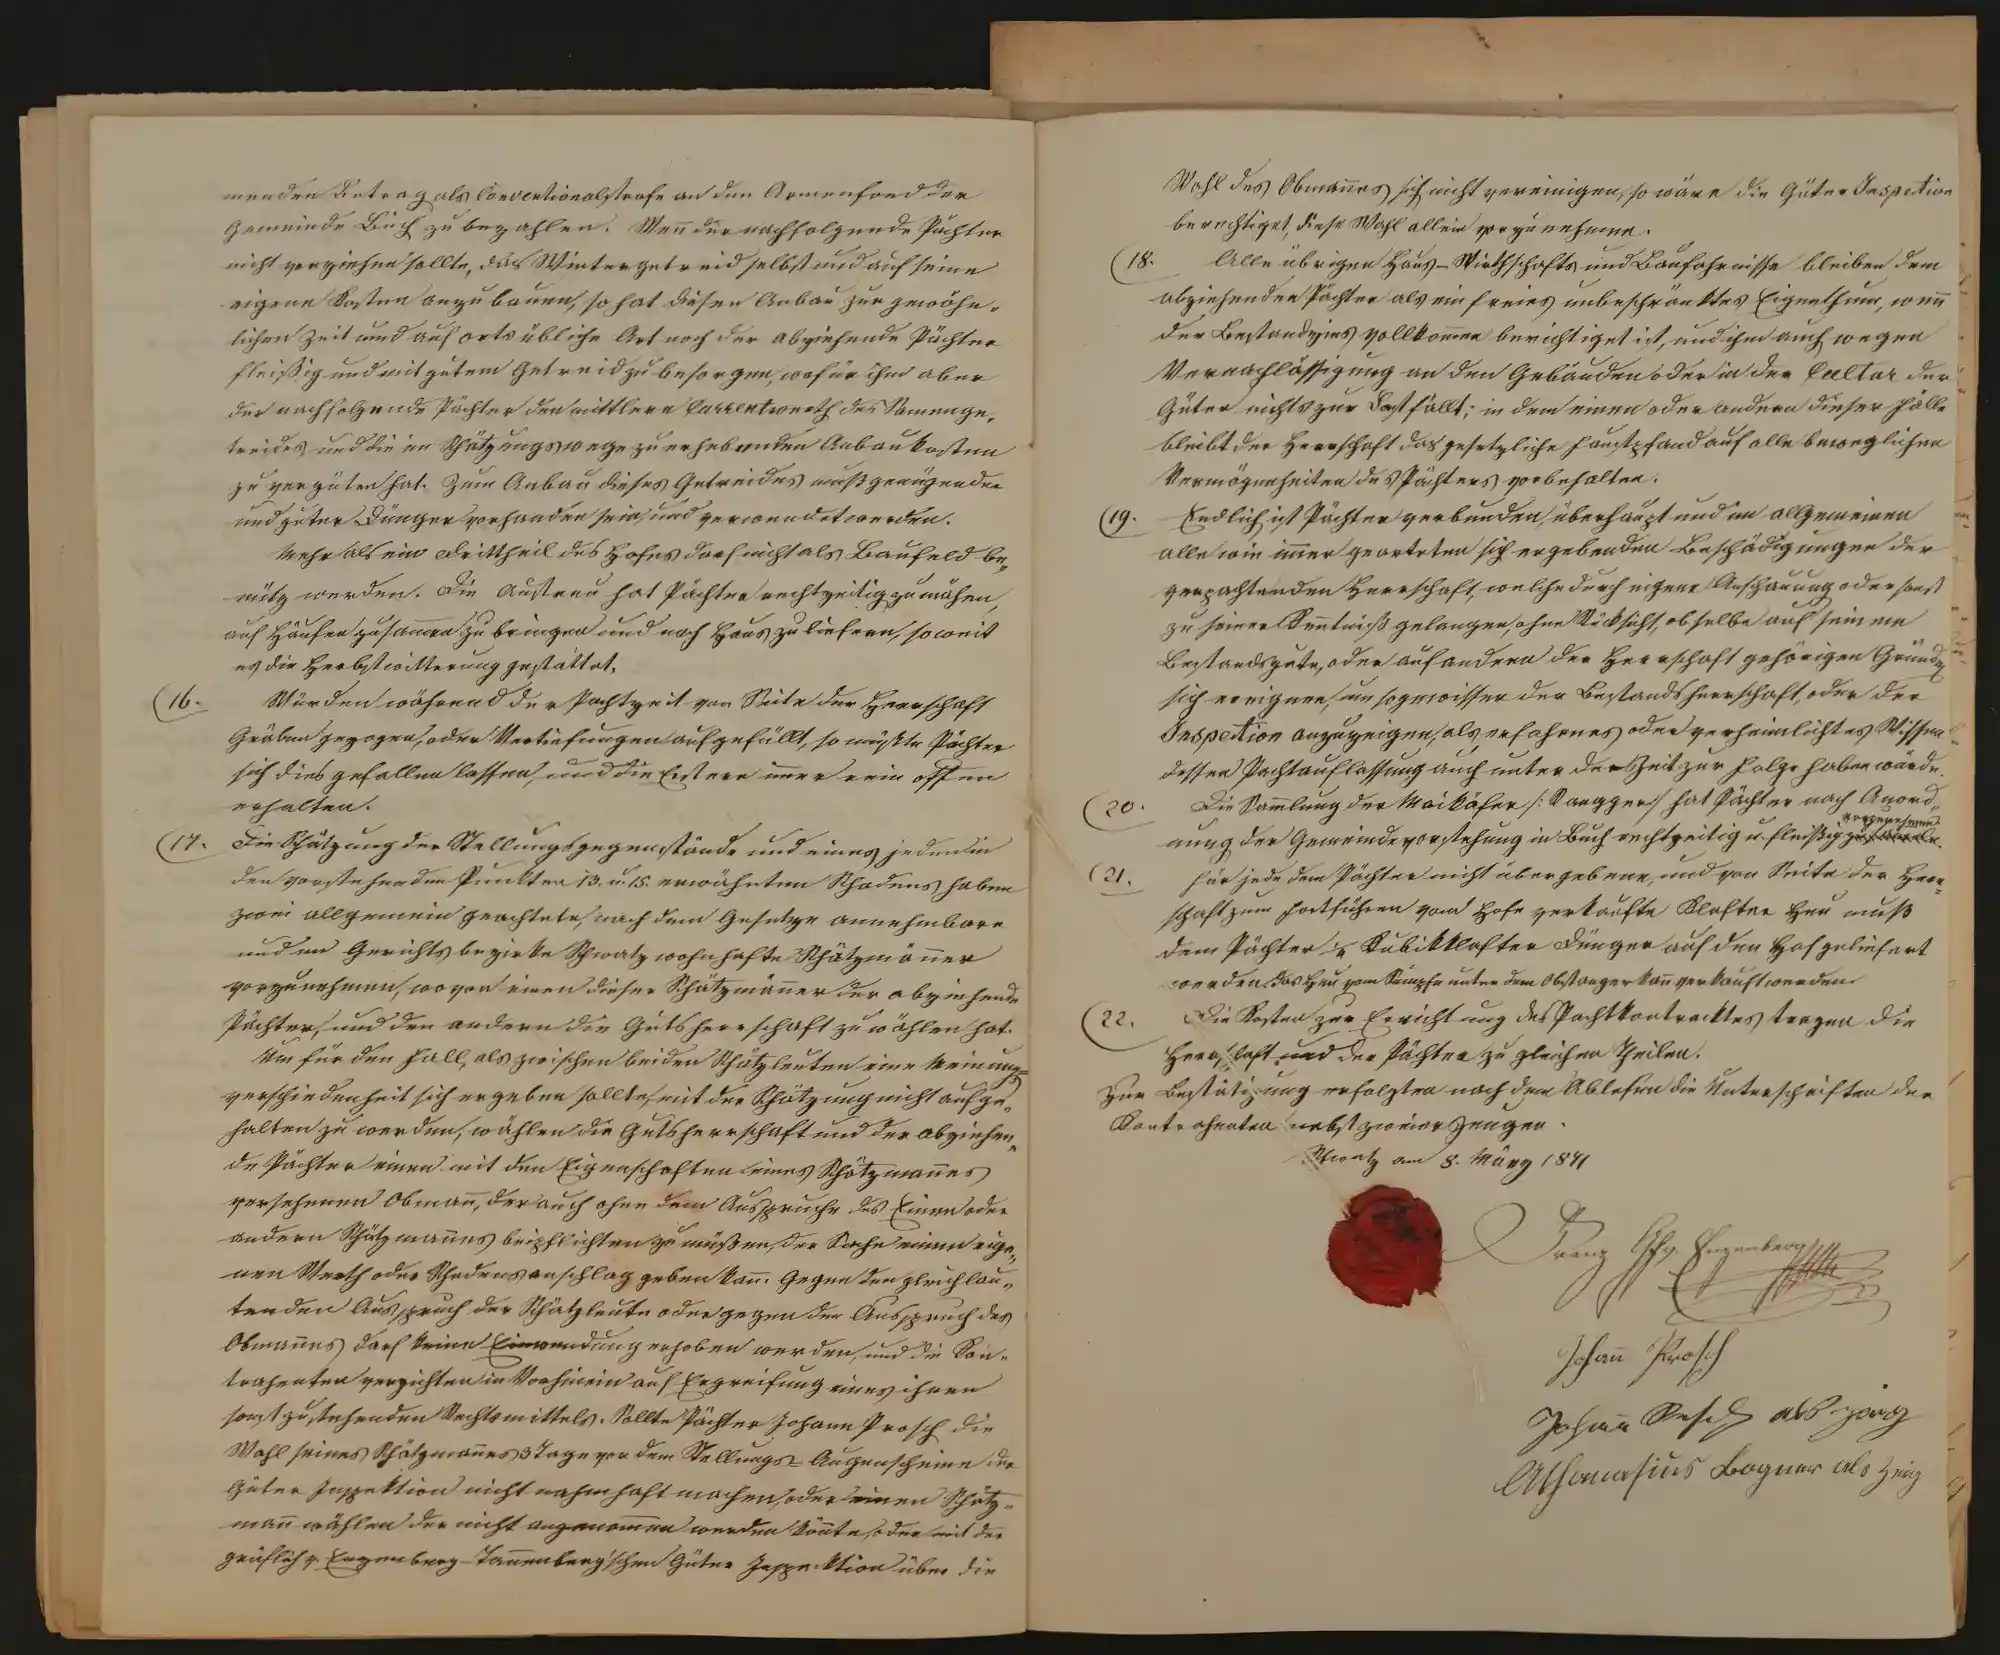 menden Betrag als Conventionalstrafe an den Armenfond der
Gemeinde Buch zu bezahlen. Wenn der nachfolgende Pächter
nicht vorziehen sollte, das Wintergetreid selbst und auf seine
eigene Kosten anzubauen, so hat diesen Anbau zur gewöhn-
lichen Zeit und auf ortsübliche Art noch der abziehende Pächter
fleißig und mit gutem Getreid zu besorgen, wofür ihm aber
der nachfolgende Pächter den mittlern Currentwerth des Samenge-
treides, und die im Schätzungswege zu erhebenden Anbaukosten
zu vergüten hat. Zum Anbau dieses Getreides muß genügender
und guter Dünger vorhanden sein, und verwendet werden.
Mehr als ein Drittheil des Hofes darf nicht als Baufeld be-
nütz werden. Die Austreu hat Pächter rechtzeitig zu mähen,
auf Häufen zusammen zu bringen und nach Haus zu liefern, soweit
es die Herbstwitterung gestattet.
16. Würden während der Pachtzeit von Seite der Herrschaft
Gräben gezogen, oder Vertiefungen aufgefüllt, so müßte Pächter
sich dies gefallen lassen, und die Erstern immer rein offen
erhalten.
17. Die Schätzung der Stellungsgegenstände und eines jeden in
den vorstehenden Punkten 13. u. 15. erwähnten Schadens haben
zwei allgemein geachtete, nach dem Gesetze annehmbare
und im Gerichtsbezirke Schwatz wohnhafte Schätzmänner
vorzunehmen, wovon einen dieser Schätzmänner der abziehende
Pächter, und den andern die Gutsherrschaft zu wählen hat.
Um für den Fall, als zwischen beiden Schätzleuten eine Meinungs-
verschiedenheit sich ergeben sollte, mit der Schätzung nicht aufge-
halten zu werden, wählen die Gutsherrschaft und der abziehen-
de Pächter einen mit den Eigenschaften eines Schätzmannes
versehenen Obmann, der auch ohne dem Ausspruche des Einen oder
andern Schätzmannes beipflichten zu müßen, der Sache einen eige-
nen Werth oder Schadensanschlag geben kann. Gegen den gleichlau-
tenden Ausspruch der Schätzleute oder gegen den Ausspruch des
Obmannes darf keine Einwendung erhoben werden, und die Kon-
trahenten verzichten im Vorhinein auf Ergreifung eines ihnen
sonst zustehenden Rechtsmittels. Sollte Pächter Johann Prosch die
Wahl seines Schätzmannes 3 Tage vor dem Stellungs-Augenscheine der
Güter Inspektion nicht nahmhaft machen, oder einen Schätz-
mann wählen der nicht angenommen werden könnte, oder mit der
gräflich v. Enzenberg-Tannenberg'schen Güter Inspektion über die
Wahl des Obmannes sich nicht vereinigen, so wäre die Güter Inspection
berechtiget, diese Wahl allein vorzunehmen.
18. Alle übrigen Haus-Wirthschafts und Baufahrnisse bleiben dem
abziehenden Pächter als ein freies unbeschränktes Eigenthum, wenn
der Bestandzins vollkommen berichtiget ist, und ihm auch wegen
Vernachlässigung an den Gebäuden oder in der Cultur der
Güter nichts zur Last fällt; in dem einen oder andern dieser Fälle
bleibt der Herrschaft das gesetzliche Faustpfand auf alle beweglichen
Vermögenheiten des Pächters vorbehalten.
19. Endlich ist Pächter verbunden, überhaupt und im allgemeinen
alle wie immer gearteten sich ergebenden Beschädigungen der
verpachtenden Herrschaft, welche durch eigene Anschauung oder sonst
zu seiner Kenntniß gelangen, ohne Rücksicht, ob selbe auf seinem
Bestandsgute, oder auf andern der Herrschaft gehörigen Gründen
sich ereignen, um so gewisser der Bestandsherrschaft, oder der
Inspection anzuzeigen, als erfahrnes oder verheimlichtes Wissen
dessen Pachtauflassung auch unter der Zeit zur Folge haben würde.
20. Die Sammlung der Maikäfer /: Rangger :/ hat Pächter nach Anord-
nung der Gemeindevorstehung in Buch rechtzeitig u. fleißig vorzunehmen.
21. Für jede dem Pächter nicht übergebene, und von Seite der Herr-
schaft zum Fortführen vom Hofe verkaufte Klafter Heu muß
dem Pächter Kubikklafter Dünger auf den Hof geliefert
werden. Das Heu vom Sumpfe unter dem Obstanger kann verkauft werden.
22. Die Kosten zur Errichtung des Pachtkontracktes tragen die
Herrschaft und der Pächter zu gleichen Theilen.
Zur Bestätigung erfolgten nach dem Ablesen die Unterschriften der
Kontrahenten nebst zweier Zeugen.
Schwatz am 8. März 1871
Franz Gf. v. Enzenberg
Johann Prosch
Johann Resch als Zeug
Athanasius Bogner als Zeug